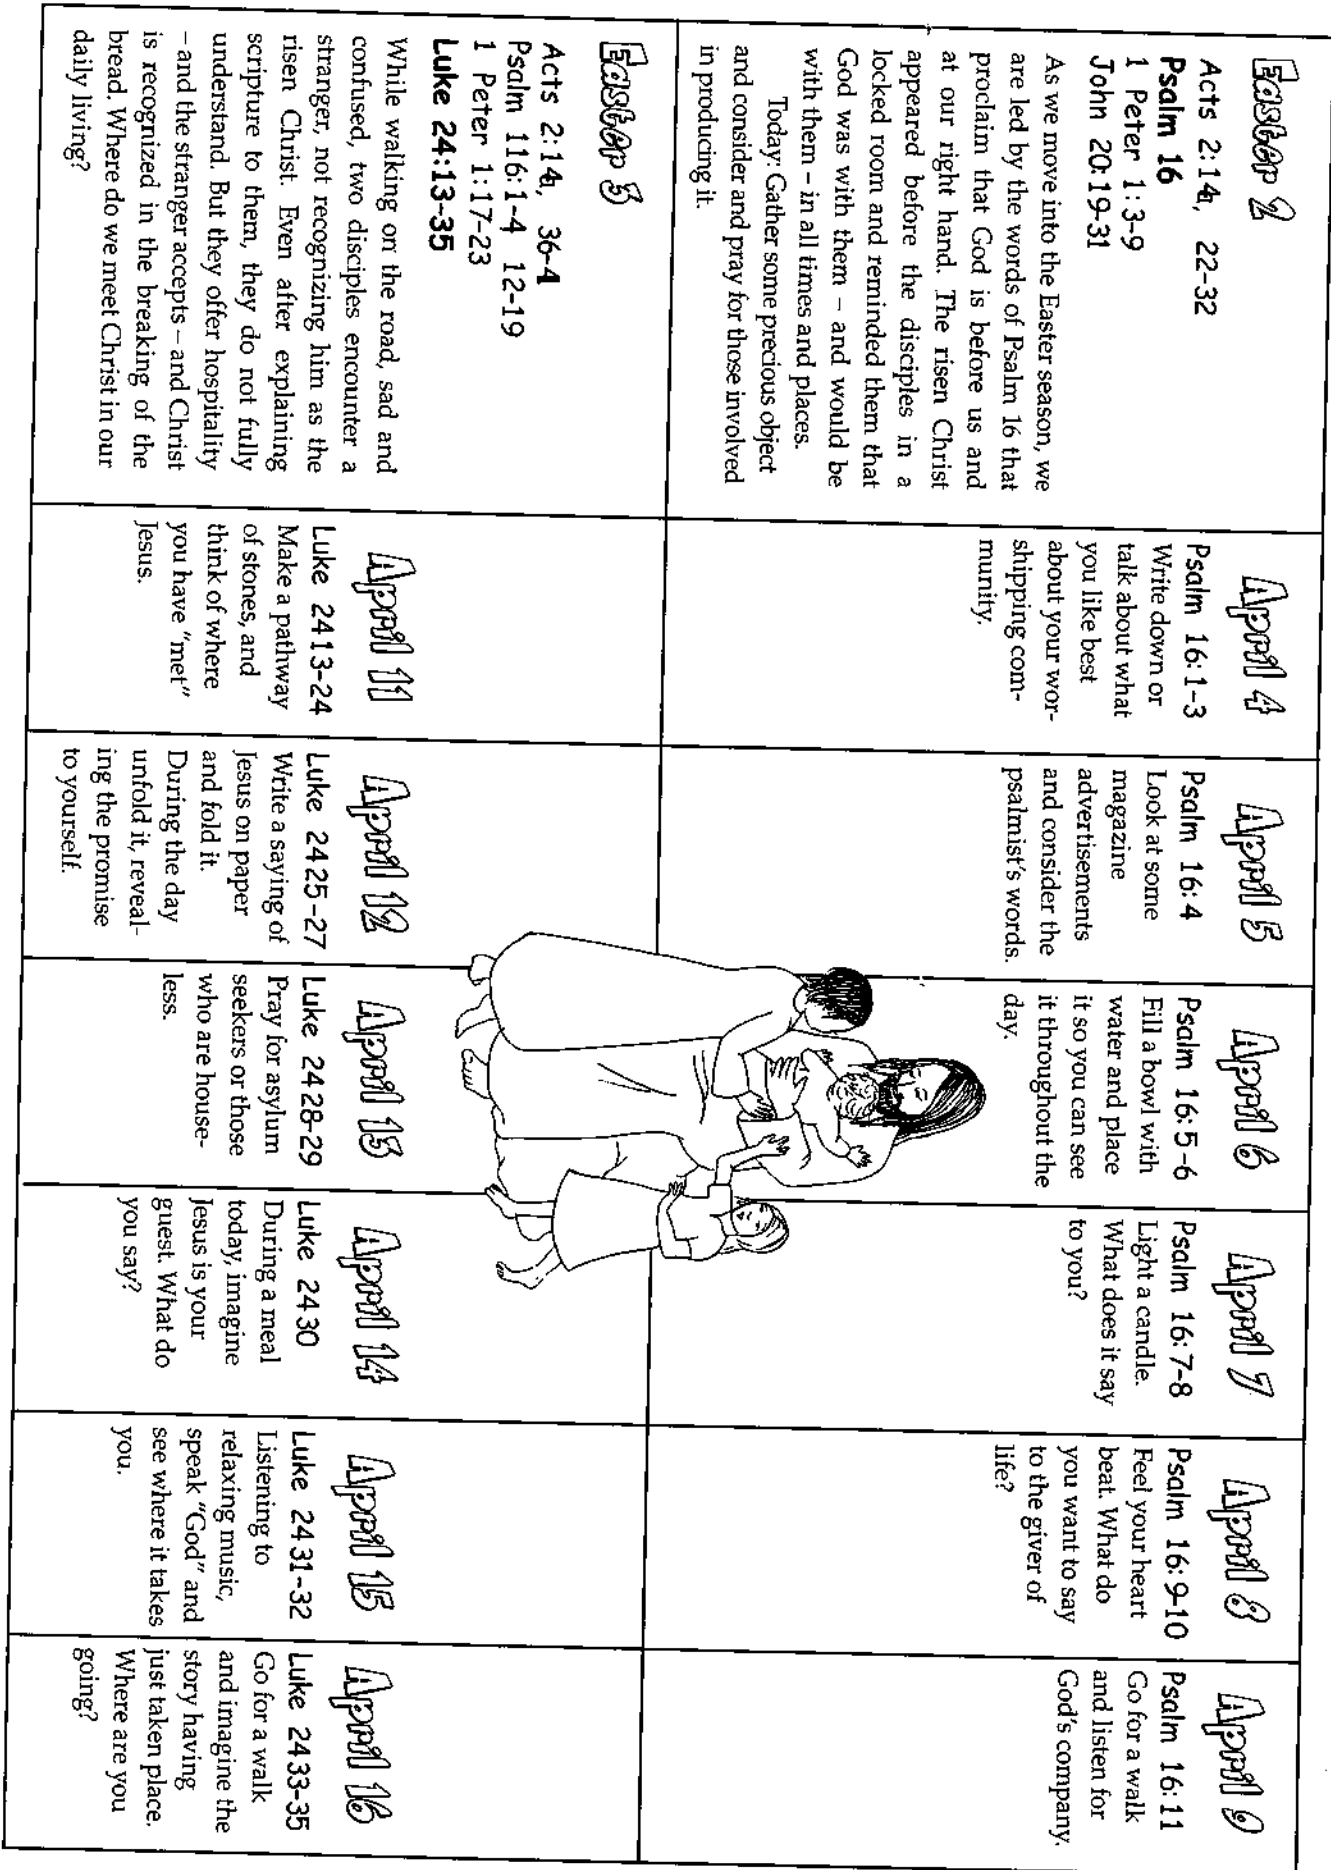 Easter 2
Acts 2:14a, 22-32
Psalm 16
1 Peter 1:3-9
John 20:19-31
As we move into the Easter season, we
are led by the words of Psalm 16 that
proclaim that God is before us and
at our right hand. The risen Christ
appeared before the disciples in a
locked room and reminded them that
God was with them – and would be
with them – in all times and places.
Today: Gather some precious object
and consider and pray for those involved
in producing it.
April 4
Psalm 16:1-3
Write down or
talk about what
you like best
about your wor-
shipping com-
munity.
April 5
Psalm 16:4
Look at some
magazine
advertisements
and consider the
psalmist's words.
April 6
Psalm 16:5-6
Fill a bowl with
water and place
it so you can see
it throughout the
day.
April 7
Psalm 16:7-8
Light a candle.
What does it say
to you?
April 8
Psalm 16:9-10
Feel your heart
beat. What do
you want to say
to the giver of
life?
April 9
Psalm 16:11
Go for a walk
and listen for
God's company.
Easter 3
Acts 2:14a, 36-4
Psalm 116:1-4 12-19
1 Peter 1:17-23
Luke 24:13-35
While walking on the road, sad and
confused, two disciples encounter a
stranger, not recognizing him as the
risen Christ. Even after explaining
scripture to them, they do not fully
understand. But they offer hospitality
– and the stranger accepts – and Christ
is recognized in the breaking of the
bread. Where do we meet Christ in our
daily living?
April 11
Luke 2413-24
Make a pathway
of stones, and
think of where
you have "met"
Jesus.
April 12
Luke 2425-27
Write a saying of
Jesus on paper
and fold it.
During the day
unfold it, reveal-
ing the promise
to yourself.
April 13
Luke 2428-29
Pray for asylum
seekers or those
who are house-
less.
April 14
Luke 2430
During a meal
today, imagine
Jesus is your
guest. What do
you say?
April 15
Luke 2431-32
Listening to
relaxing music,
speak "God" and
see where it takes
you.
April 16
Luke 2433-35
Go for a walk
and imagine the
story having
just taken place.
Where are you
going?